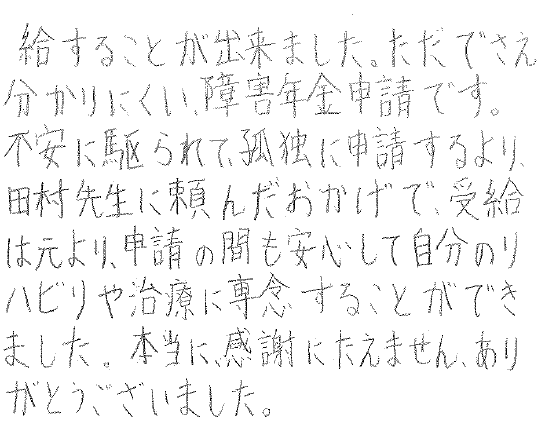 給することが出来ました。ただでさえ
分かりにくい、障害年金申請です。
不安に駆られて、孤独に申請するより、
田村先生に頼んだおかげで、受給
は元より、申請の間も安心して自分のリ
ハビリや治療に専念することができ
ました。本当に、感謝にたえません、あり
がとうございました。